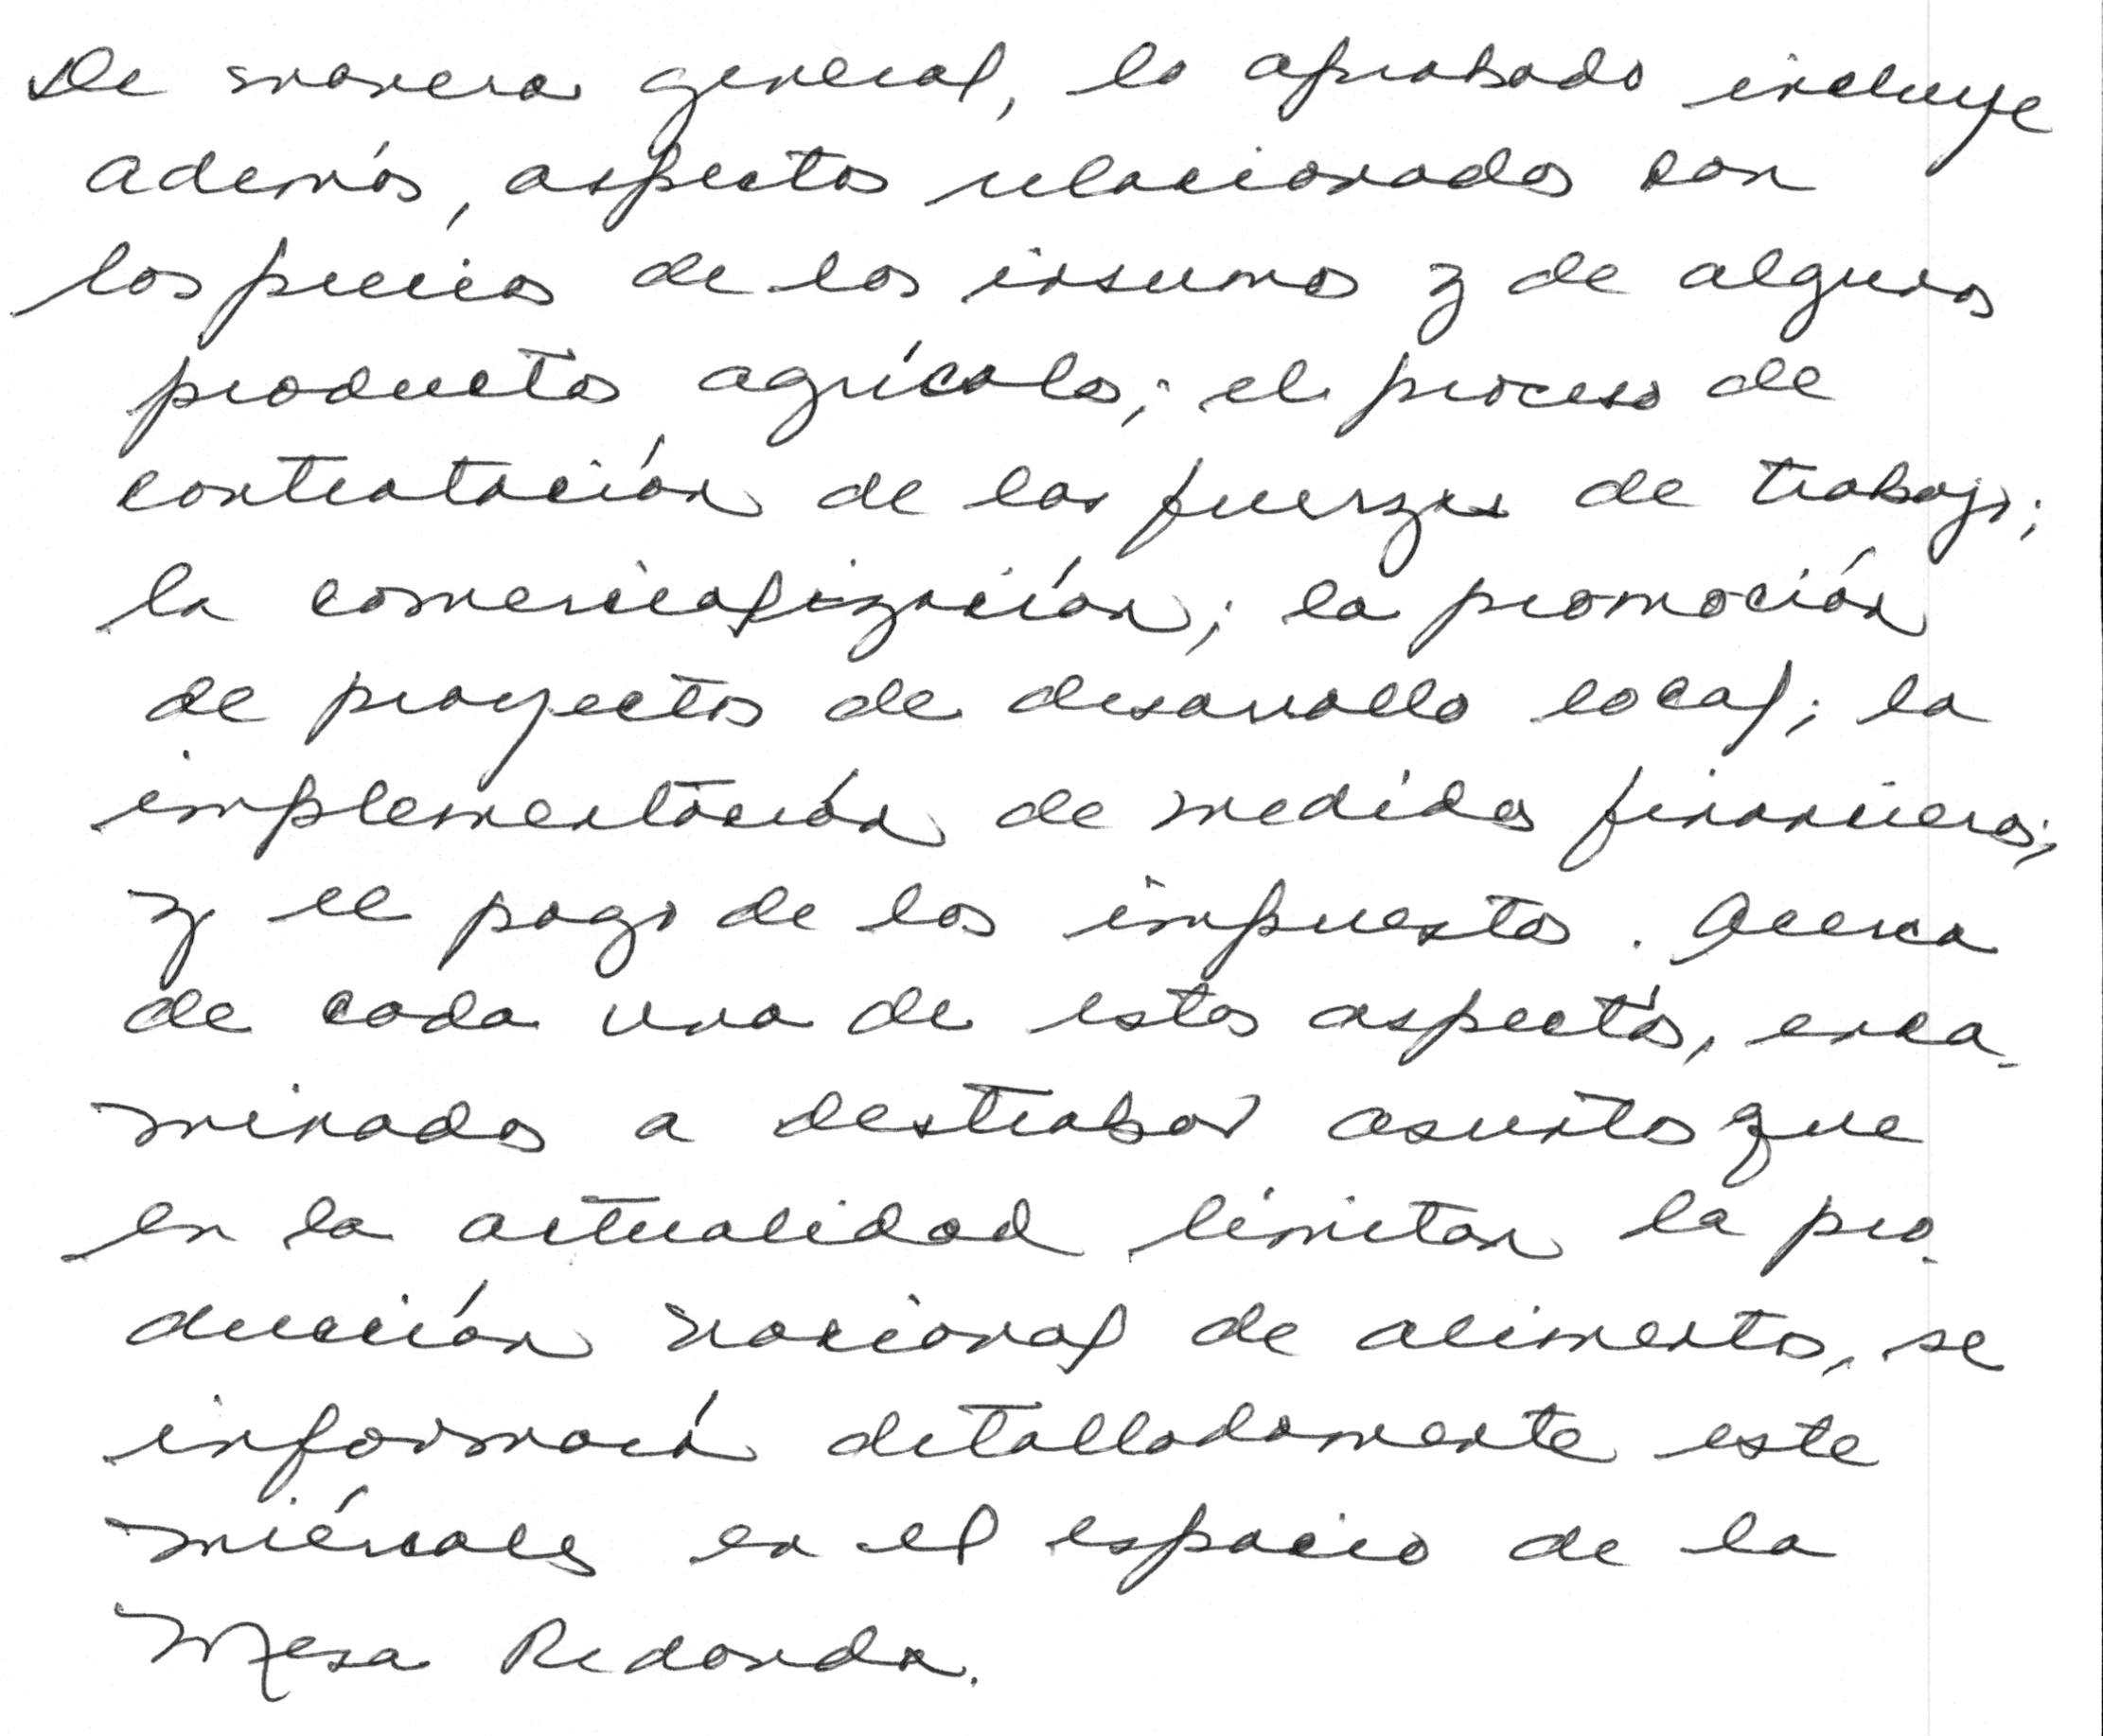 De manera general, lo aprobado incluye
además, aspectos relacionados con
los precios de los insumos y de algunos
productos agrícolas; el proceso de
contratación de las fuerzas de trabajo;
la comercialización; la promoción
de proyectos de desarrollo local; la
implementación de medidas financieras;
y el pago de los impuestos. Acerca
de cada uno de estos aspectos, enca-
minados a destrabar asuntos que
en la actualidad limitan la pro-
ducción nacional de alimentos, se
informará detalladamente este
miércoles en el espacio de la
Mesa Redonda.